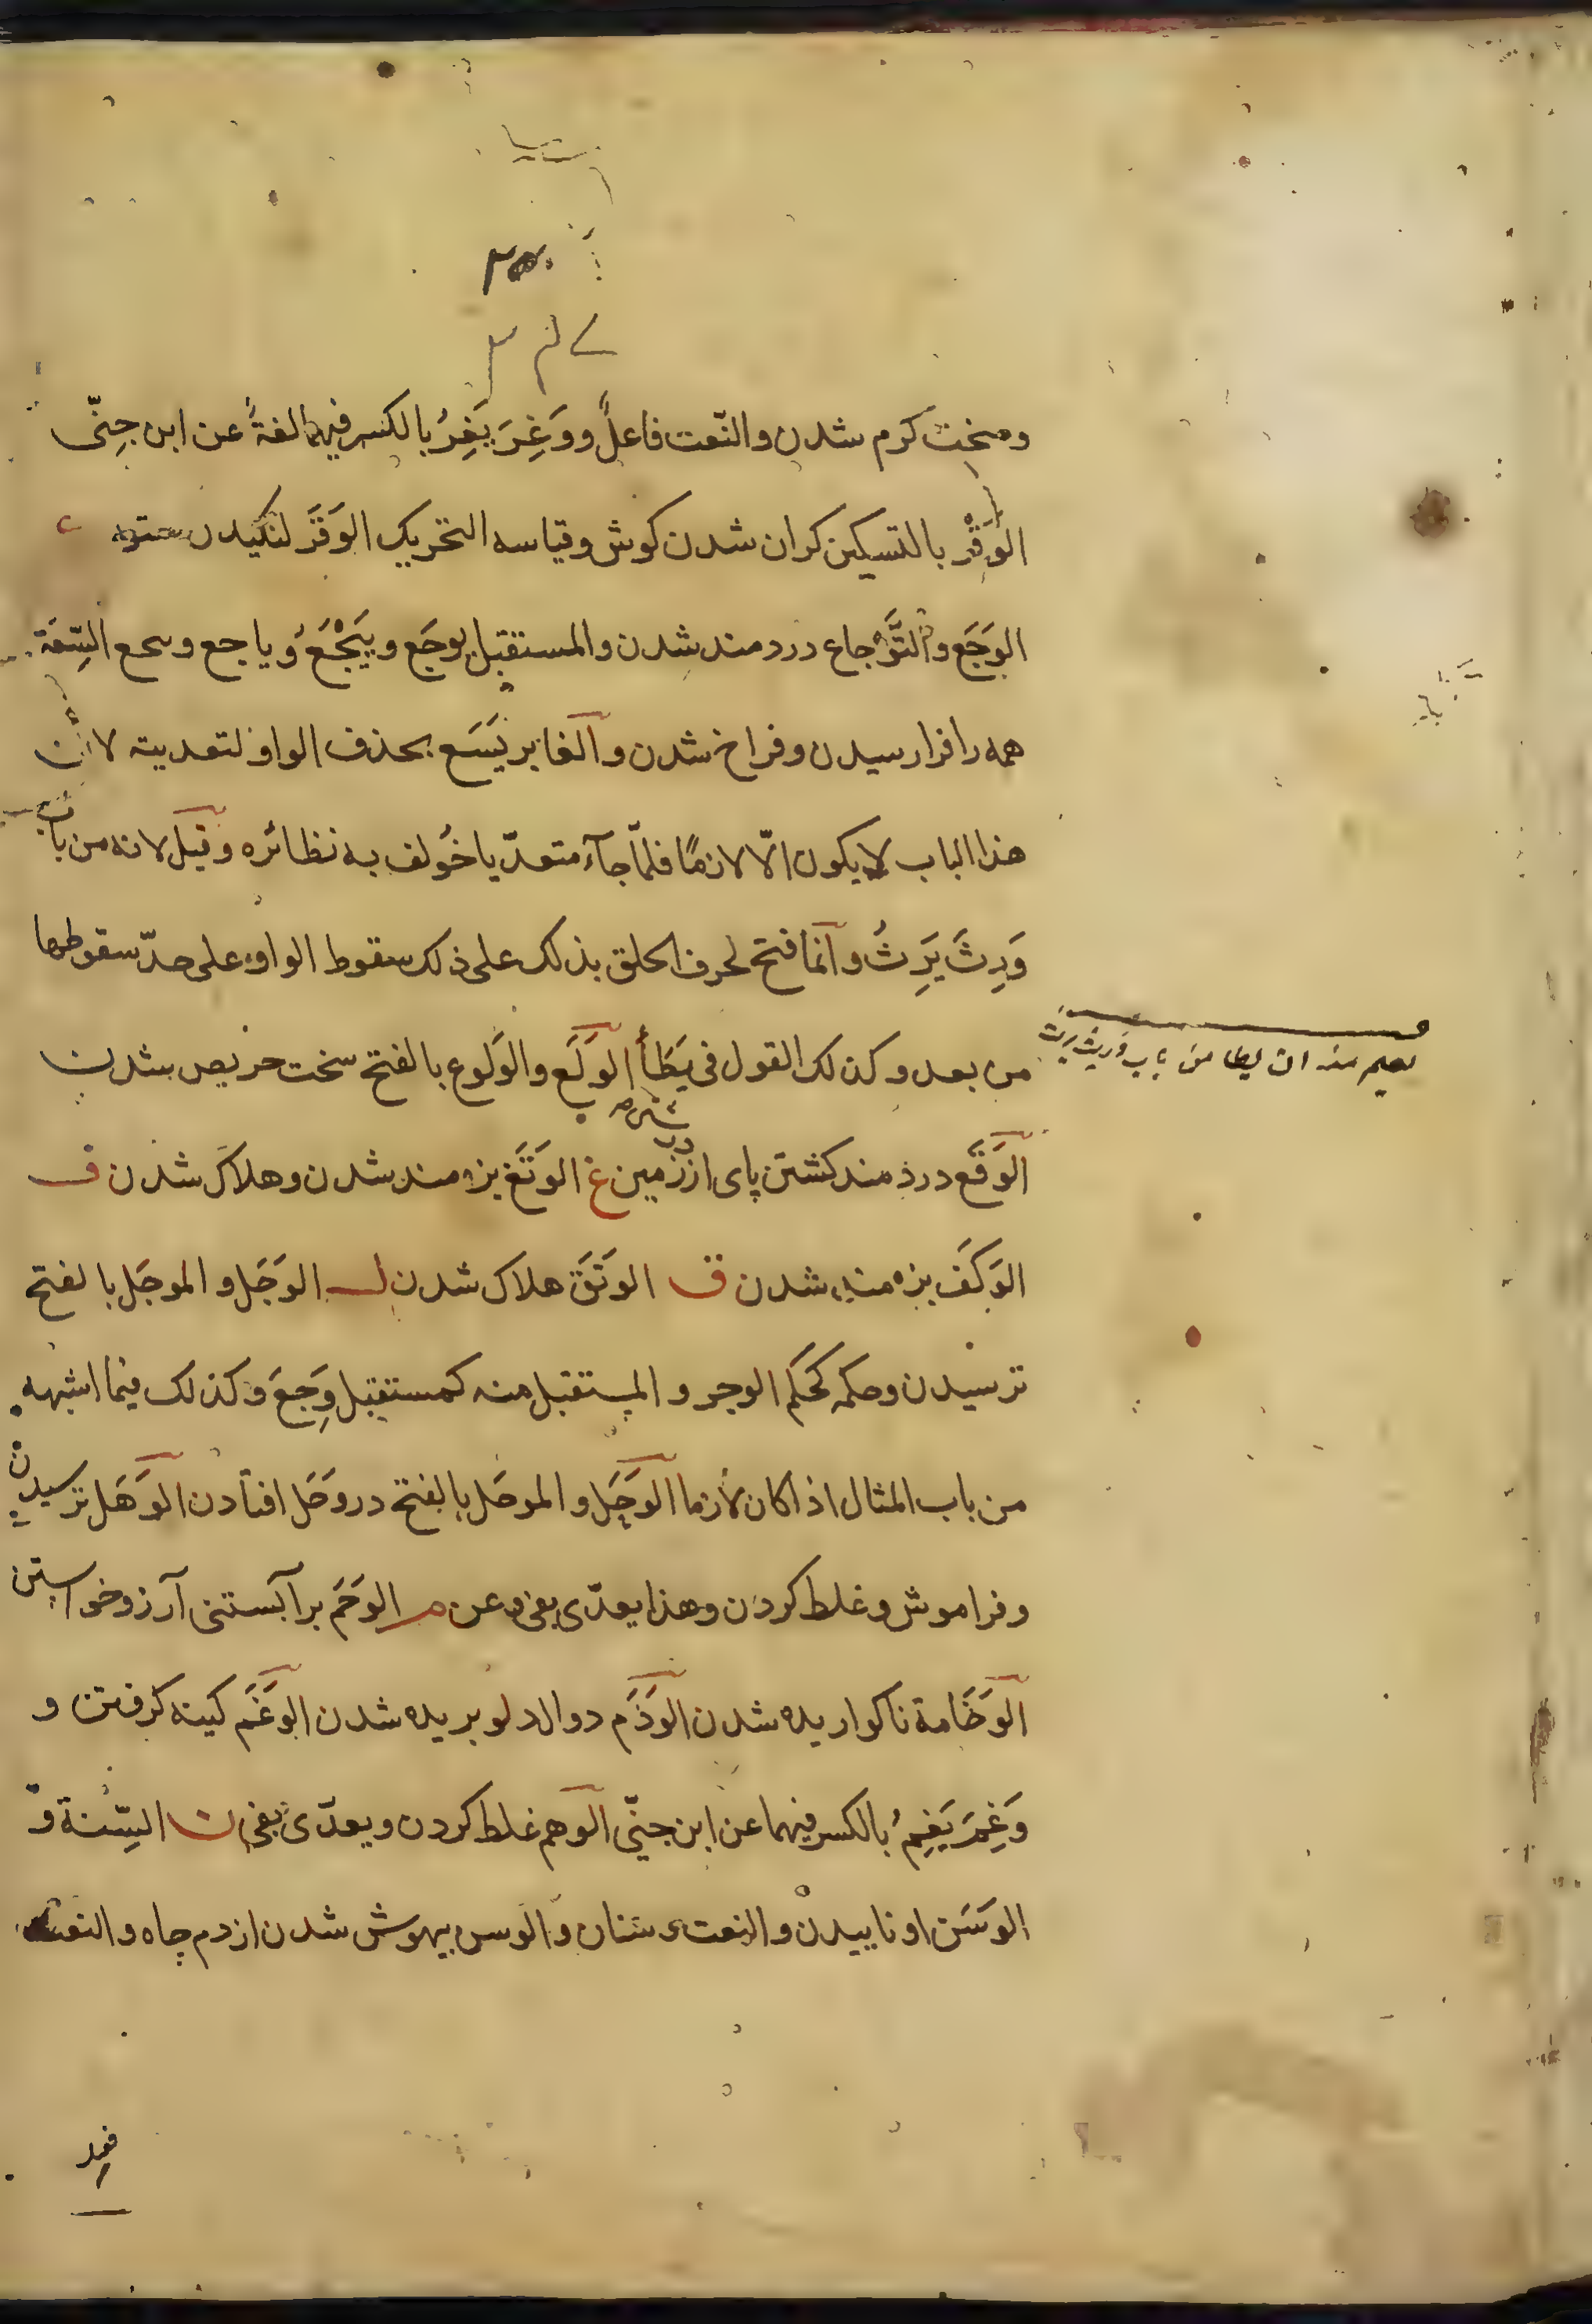 وسخت کرم شدن والنّعت فاعلٌ ووَغِرَ يَغِرُ بالكسر فيهما لغةً عن ابن جِنّى
الوَقْر بالتسكين کران شدن کوش وقياسه التحريك الوَقَر لنکیدن ستور ع
الوَجَع والتَّوجاع دردمند شدن والمستقبل يوجَع ويَيْجَعُ وياجع وىىجع السِّعَة
همه را فرارسیدن وفراخ شدن والغابر يَسَع بحذف الواو لتعديته لأن
هذا الباب لا يكون الّا لازمًا فلمّا جآء متعدّيا خُولف به نظائره وقيل لانه من باب
وَرِثَ يَرِثُ وانّما فتح لحرف الحلق بذلك على ذلك سقوط الواو على حدّ سقوطها
من بعد وكذلك القول فى يَطَأُ الوَلَع والوَلوع بالفتح سخت حریص شدن
يعلم منه ان يطا من باب ورث يرث
الوَقَع دردمند کشتن پای از زمین غ الوَتَغ بزه مند شدن وهلاک شدن ف
درشتی
الوَكَف بزه مند شدن ق الوَبَق هلاک شدن ل الوَجَل والموجَل بالفتح
ترسیدن وحكمه كحكم الوجر والمستقبل منه كمستقبل وَجِعَ وكذلك فيما اشبهه
من باب المثال اذا كان لازما الوَحَل والموحَل بالفتح در وَحَل افتادن الوَهَل ترسیدن
وفراموش وغلط کردن وهذا يعدّى بفى وعن م الوَحَم بر آبستنی آرزو خواستن
الوَخَامة ناکواریده شدن الوَذَم دوال دلو بریده شدن الوَغَم کینه کرفتن و
وَغِمَ يَغِمُ بالكسر فيهما عن ابن جنّى الوهم غلط کردن ويعدّى بفى ن السِّنة و
الوَسَن اوناییدن والنعت وسنان والوسن بیهوش شدن از دم چاه والنعت